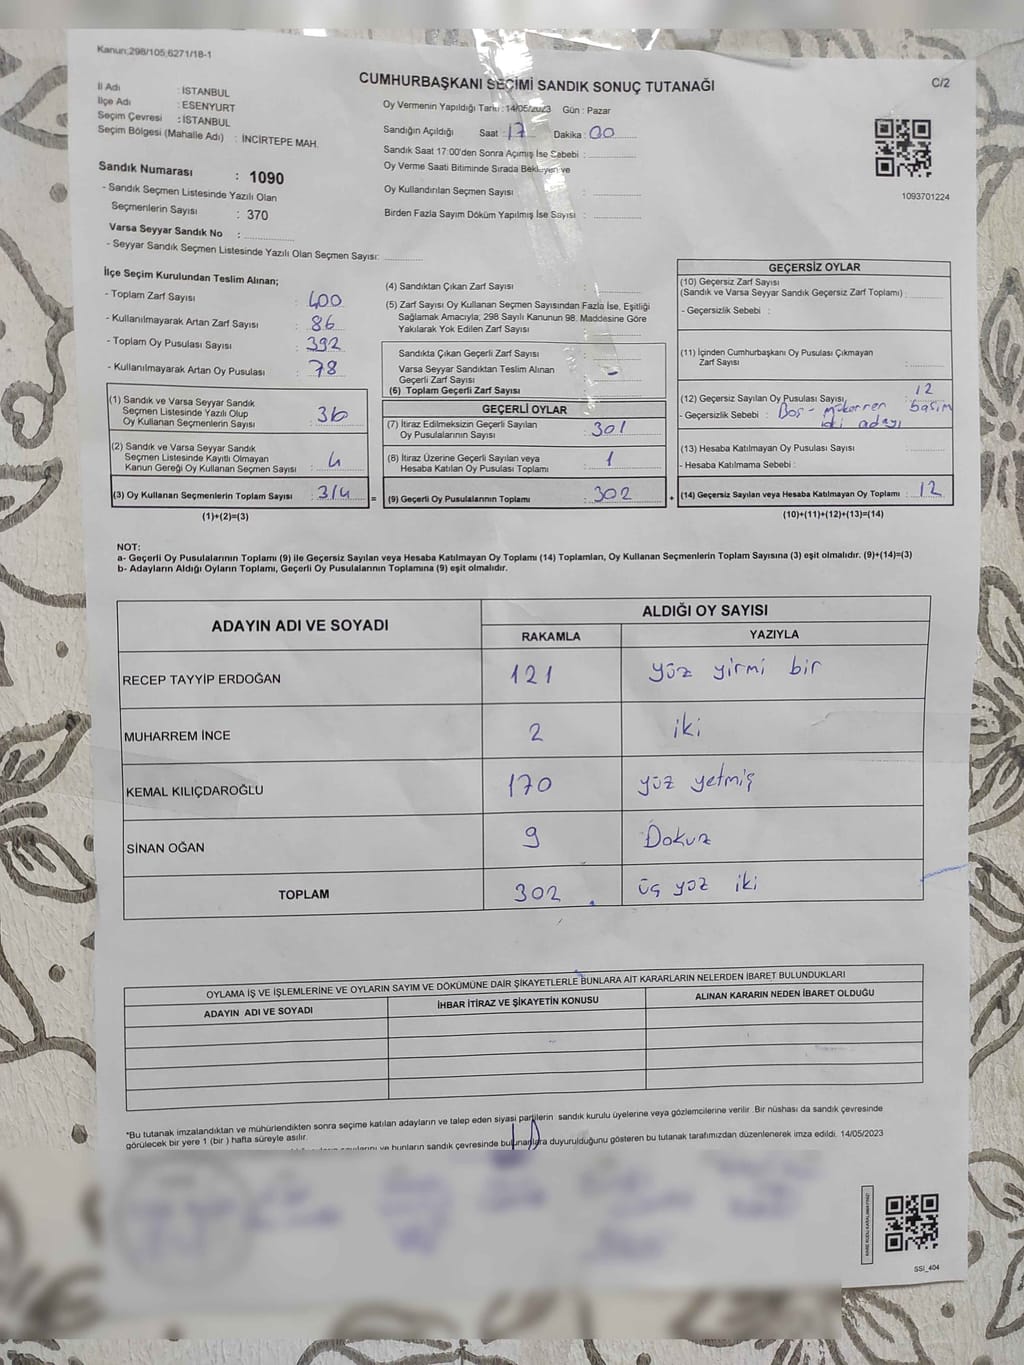 Kanun;298/105;6271/18-1
CUMHURBAŞKANI SEÇİMİ SANDIK SONUÇ TUTANAĞI
C/2
İl Adı : İSTANBUL
İlçe Adı : ESENYURT
Seçim Çevresi : İSTANBUL
Seçim Bölgesi (Mahalle Adı) : İNCİRTEPE MAH.
Oy Vermenin Yapıldığı Tarih : 14/05/2023 Gün : Pazar
Sandığın Açıldığı Saat : 17 Dakika : 00
Sandık Saat 17:00'den Sonra Açılmış İse Sebebi :
Oy Verme Saati Bitiminde Sırada Bekleyen ve
Oy Kullandırılan Seçmen Sayısı :
Birden Fazla Sayım Döküm Yapılmış İse Sayısı :
1093701224
Sandık Numarası : 1090
- Sandık Seçmen Listesinde Yazılı Olan
Seçmenlerin Sayısı : 370
Varsa Seyyar Sandık No :
- Seyyar Sandık Seçmen Listesinde Yazılı Olan Seçmen Sayısı:
İlçe Seçim Kurulundan Teslim Alınan;
- Toplam Zarf Sayısı : 400
- Kullanılmayarak Artan Zarf Sayısı : 86
- Toplam Oy Pusulası Sayısı : 392
- Kullanılmayarak Artan Oy Pusulası : 78
(1) Sandık ve Varsa Seyyar Sandık
Seçmen Listesinde Yazılı Olup
Oy Kullanan Seçmenlerin Sayısı :
(2) Sandık ve Varsa Seyyar Sandık
Seçmen Listesinde Kayıtlı Olmayan
Kanun Gereği Oy Kullanan Seçmen Sayısı : 4
(3) Oy Kullanan Seçmenlerin Toplam Sayısı : 314
(1)+(2)=(3)
=
(4) Sandıktan Çıkan Zarf Sayısı :
(5) Zarf Sayısı Oy Kullanan Seçmen Sayısından Fazla İse, Eşitliği
Sağlamak Amacıyla; 298 Sayılı Kanunun 98. Maddesine Göre
Yakılarak Yok Edilen Zarf Sayısı :
Sandıkta Çıkan Geçerli Zarf Sayısı :
Varsa Seyyar Sandıktan Teslim Alınan
Geçerli Zarf Sayısı : -
(6) Toplam Geçerli Zarf Sayısı :
GEÇERLİ OYLAR
(7) İtiraz Edilmeksizin Geçerli Sayılan
Oy Pusulalarının Sayısı : 301
(8) İtiraz Üzerine Geçerli Sayılan veya
Hesaba Katılan Oy Pusulası Toplamı : 1
(9) Geçerli Oy Pusulalarının Toplamı : 302
+
GEÇERSİZ OYLAR
(10) Geçersiz Zarf Sayısı
(Sandık ve Varsa Seyyar Sandık Geçersiz Zarf Toplamı) :
- Geçersizlik Sebebi :
(11) İçinden Cumhurbaşkanı Oy Pusulası Çıkmayan
Zarf Sayısı :
(12) Geçersiz Sayılan Oy Pusulası Sayısı, 12
- Geçersizlik Sebebi : Boş - mükerrer basım
iki adayı
(13) Hesaba Katılmayan Oy Pusulası Sayısı :
- Hesaba Katılmama Sebebi :
(14) Geçersiz Sayılan veya Hesaba Katılmayan Oy Toplamı : 12
(10)+(11)+(12)+(13)=(14)
NOT:
a- Geçerli Oy Pusulalarının Toplamı (9) ile Geçersiz Sayılan veya Hesaba Katılmayan Oy Toplamı (14) Toplamları, Oy Kullanan Seçmenlerin Toplam Sayısına (3) eşit olmalıdır. (9)+(14)=(3)
b- Adayların Aldığı Oyların Toplamı, Geçerli Oy Pusulalarının Toplamına (9) eşit olmalıdır.
ADAYIN ADI VE SOYADI
ALDIĞI OY SAYISI
RAKAMLA YAZIYLA
RECEP TAYYİP ERDOĞAN 121 yüz yirmi bir
MUHARREM İNCE 2 iki
KEMAL KILIÇDAROĞLU 170 yüz yetmiş
SİNAN OĞAN 9 Dokuz
TOPLAM 302 üç yüz iki
OYLAMA İŞ VE İŞLEMLERİNE VE OYLARIN SAYIM VE DÖKÜMÜNE DAİR ŞİKAYETLERLE BUNLARA AİT KARARLARIN NELERDEN İBARET BULUNDUKLARI
ADAYIN ADI VE SOYADI İHBAR İTİRAZ VE ŞİKAYETİN KONUSU ALINAN KARARIN NEDEN İBARET OLDUĞU
*Bu tutanak imzalandıktan ve mühürlendikten sonra seçime katılan adayların ve talep eden siyasi partilerin sandık kurulu üyelerine veya gözlemcilerine verilir. Bir nüshası da sandık çevresinde
görülecek bir yere 1 (bir) hafta süreyle asılır.
ve bunların sandık çevresinde bulunanlara duyurulduğunu gösteren bu tutanak tarafımızdan düzenlenerek imza edildi. 14/05/2023
SSI_404